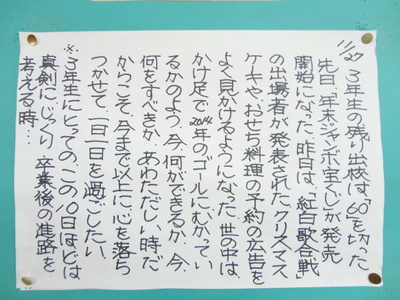 11/27 3年生の残り出校は「60」を切った
先日「年末ジャンボ宝くじ」が発売
開始になった。昨日は、「紅白歌合戦」
の出場者が発表された。クリスマス
ケーキや、おせち料理の予約の広告を
よく見かけるようになった。世の中は
かけ足で2014年のゴールにむかってい
るかのよう。今、何ができるか、今、
何をすべきか、あわただしい時だ
からこそ、今まで以上に心を落ち
つかせて、一日一日を過ごしたい。
※3年生にとっての、この10日ほどは
真剣にじっくり 卒業後の進路を
考える時…